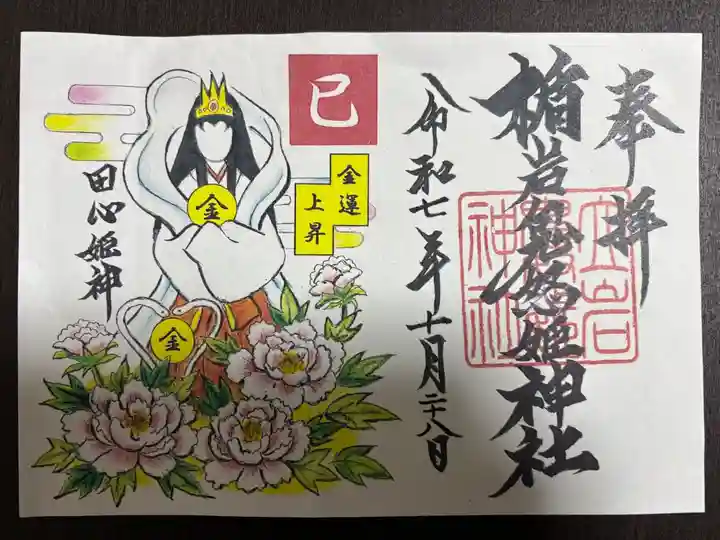 奉拝
楯岩鬼怒姫神社
令和七年十月二十八日
巳
金運
上昇
金
金
田心姫神